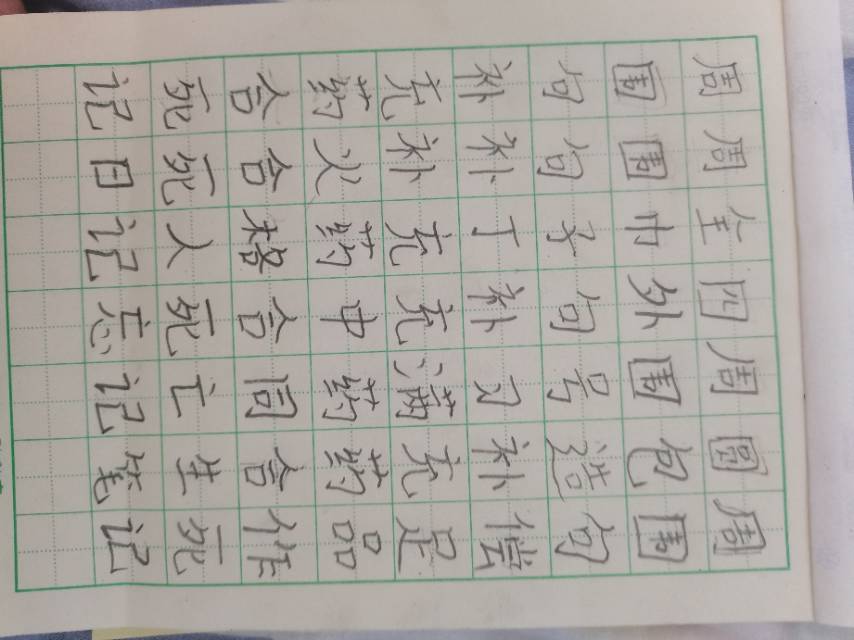 周周全四周圆周
围围巾外围包围
句句子句号造句
补补丁补习补偿
充补充充满充足
药火药中药药品
合合格合同合作
死死人死亡生死
记日记忘记笔记